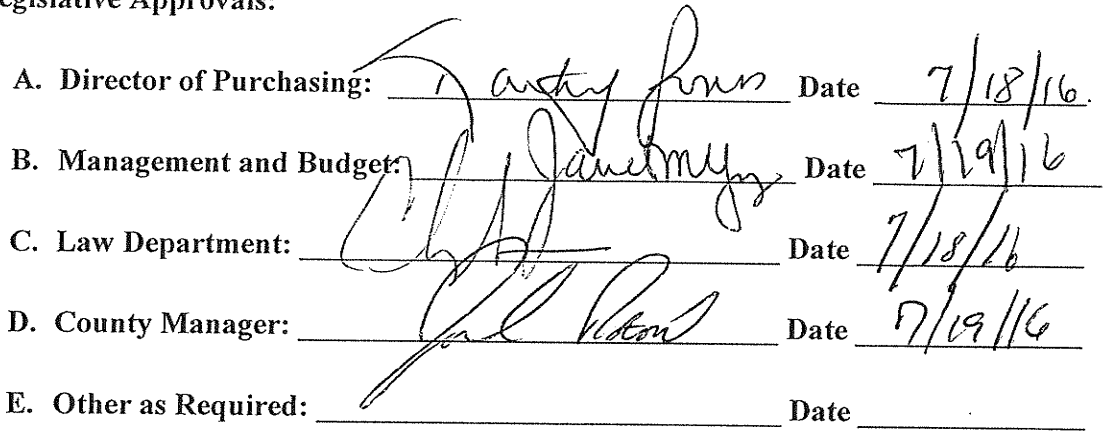 egislative Approvals:
A. Director of Purchasing: Date 7/18/16.
B. Management and Budget: Date 7/19/16
C. Law Department: Date 7/18/16
D. County Manager: Date 7/19/16
E. Other as Required: Date